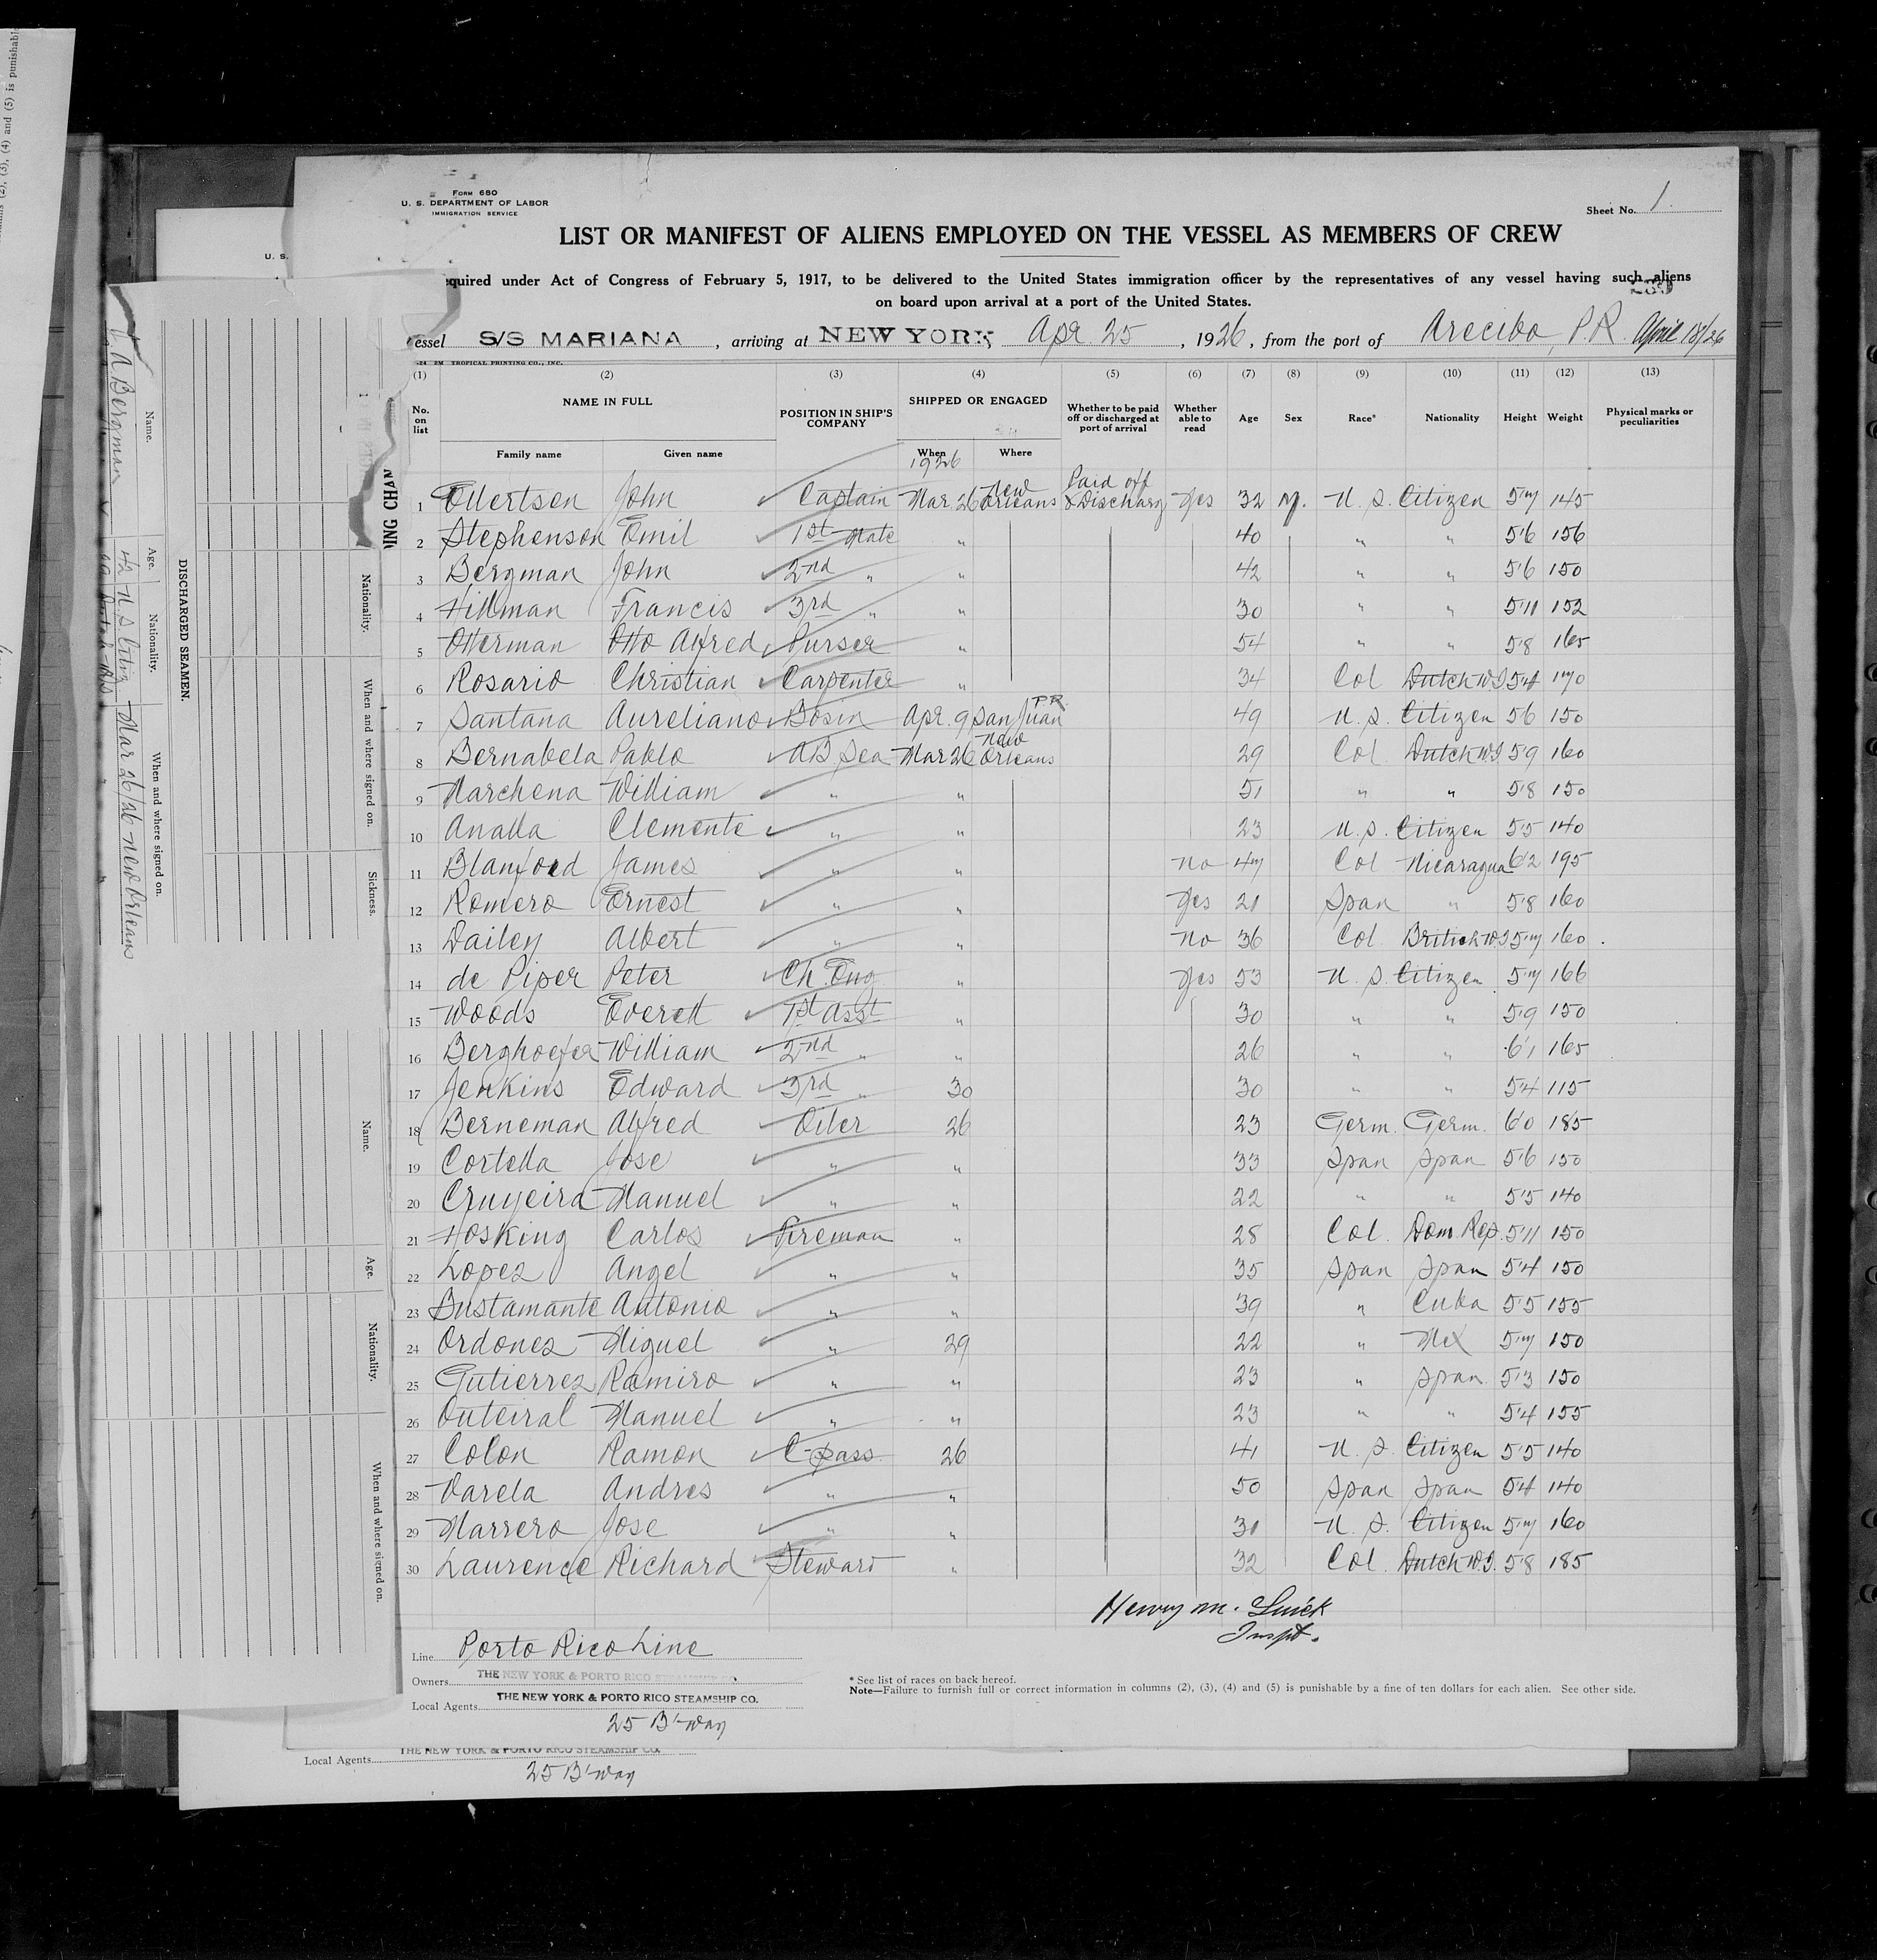 FORM 680
U. S. DEPARTMENT OF LABOR
IMMIGRATION SERVICE
Sheet No. 1.
LIST OR MANIFEST OF ALIENS EMPLOYED ON THE VESSEL AS MEMBERS OF CREW
equired under Act of Congress of February 5, 1917, to be delivered to the United States immigration officer by the representatives of any vessel having such aliens
on board upon arrival at a port of the United States.
essel S/S MARIANA, arriving at NEW YORK, Apr. 25, 1926, from the port of Arecibo, P.R. April 18/26
TROPICAL PRINTING CO., INC.
(1) (2) (3) (4) (5) (6) (7) (8) (9) (10) (11) (12) (13)
No. on list NAME IN FULL POSITION IN SHIP'S COMPANY SHIPPED OR ENGAGED Whether to be paid off or discharged at port of arrival Whether able to read Age Sex Race* Nationality Height Weight Physical marks or peculiarities
Family name Given name When Where
1926
1 Ellertsen John Captain Mar. 26 New Orleans Paid off & Discharg Yes 32 M. U. S. Citizen 5'7 145
2 Stephenson Emil 1st Mate " 40 " " 5'6 156
3 Bergman John 2nd " " 42 " " 5'6 150
4 Hillman Francis 3rd " " 30 " " 5'11 152
5 Otterman Otto Alfred Purser " 54 " " 5'8 165
6 Rosario Christian Carpenter " 34 Col Dutch W.I 5'4 170
7 Santana Aureliano Bosin Apr. 9 San Juan P.R. 49 U. S. Citizen 5'6 150
8 Bernabela Pablo AB Sea Mar 26 New Orleans 29 Col. Dutch W.I 5'9 160
9 Marchena William " " 51 " " 5'8 150
10 Analla Clemente " " 23 U. S. Citizen 5'5 140
11 Blanford James " " no 47 Col Nicaragua 6'2 195
12 Romero Ernest " " Yes 21 Span " 5'8 160
13 Dailey Albert " " no 36 Col. British W.I 5'7 160
14 de Piper Peter Ch. Eng. " Yes 53 U. S. Citizen 5'7 166
15 Woods Everett 1st Asst " 30 " " 5'9 150
16 Berghoefer William 2nd " " 26 " " 6'1 165
17 Jenkins Edward 3rd " 30 30 " " 5'4 115
18 Berneman Alfred Oiler 26 23 Germ. Germ. 6'0 185
19 Cortella Jose " " 33 Span Span 5'6 150
20 Cruyeira Manuel " " 22 " " 5'5 140
21 Hosking Carlos Fireman " 28 Col. Dom. Rep. 5'11 150
22 Lopez Angel " " 35 Span Span 5'4 150
23 Bustamante Antonio " " 39 " Cuba 5'5 155
24 Ordonez Miguel " 29 22 " Mex 5'7 150
25 Gutierrez Ramiro " " 23 " Span. 5'3 150
26 Outeiral Manuel " " 23 " " 5'4 155
27 Colon Ramon C-pass. 26 41 U. S. Citizen 5'5 140
28 Varela Andres " " 50 Span Span 5'4 140
29 Marrero Jose " " 31 U. S. Citizen 5'7 160
30 Laurence Richard Steward " 32 Col. Dutch W.I. 5'8 185
Henry M.
Inspt.
Line Porto Rico Line
Owners THE NEW YORK & PORTO RICO STEAMSHIP CO.
Local Agents THE NEW YORK & PORTO RICO STEAMSHIP CO.
25 B'way
* See list of races on back hereof.
Note—Failure to furnish full or correct information in columns (2), (3), (4) and (5) is punishable by a fine of ten dollars for each alien. See other side.
Local Agents THE NEW YORK & PORTO RICO STEAMSHIP CO.
25 B'way
U. S.
DISCHARGED SEAMEN.
Name. Age. Nationality. When and where signed on.
A Bergman 42 U. S. Citiz Mar 26/26 New Orleans
Nationality. When and where signed on. Sickness.
Name. Age. Nationality. When and where signed on.
ING CHAN
(2), (3), (4) and (5) is punishable